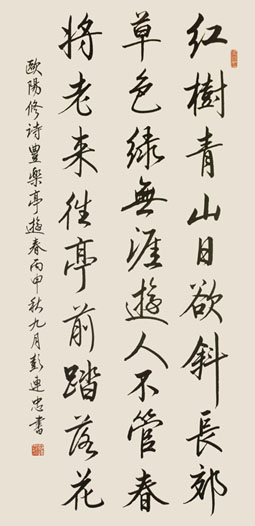 红樹青山日欲斜長郊
草色绿無涯遊人不管春
将老来往亭前踏落花
歐陽修诗豐樂亭遊春丙申秋九月彭連忠書